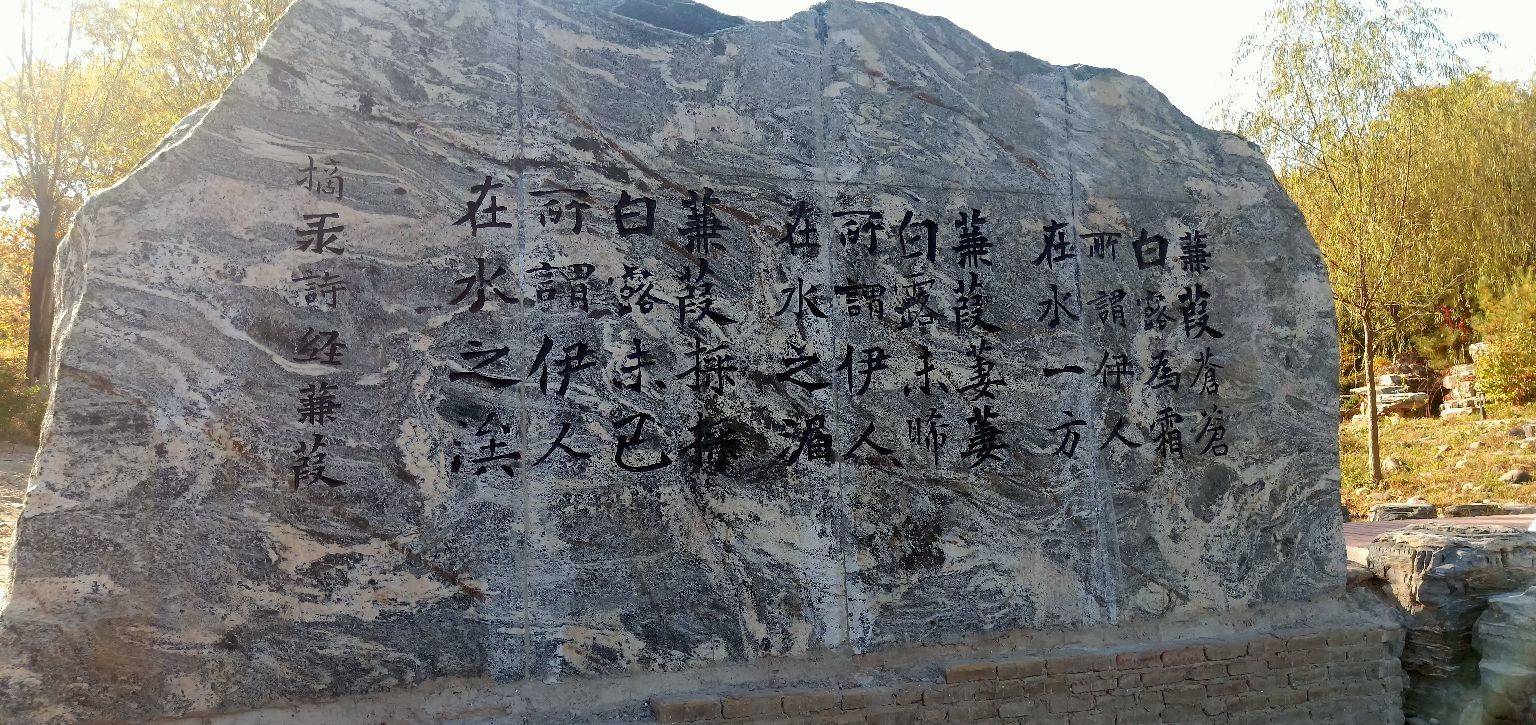 蒹葭蒼蒼
白露為霜
所謂伊人
在水一方
蒹葭萋萋
白露未晞
所謂伊人
在水之湄
蒹葭採採
白露未已
所謂伊人
在水之涘
摘录詩経蒹葭